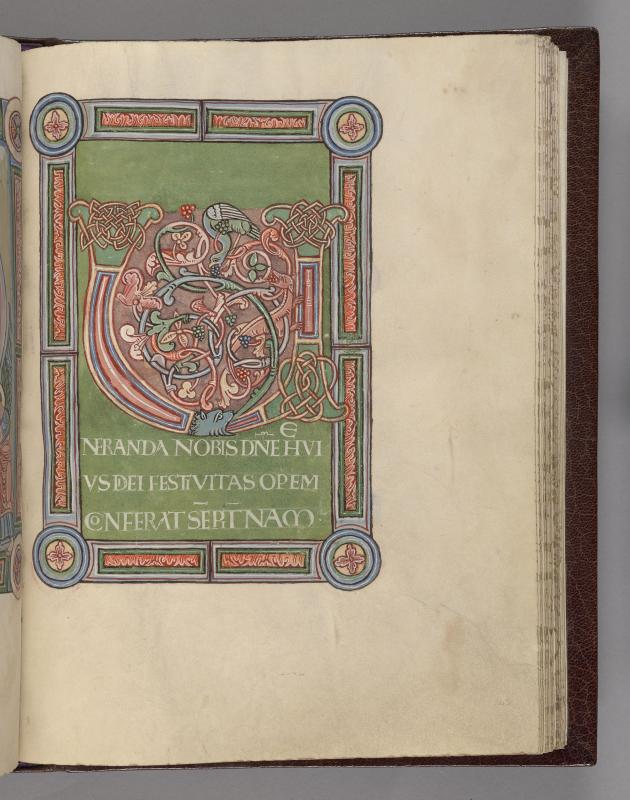 VE
NERANDA NOBIS DN̄E HVI
VS DEI FESTIVITAS OPEM
CONFERAT SĒPIT̄NAM